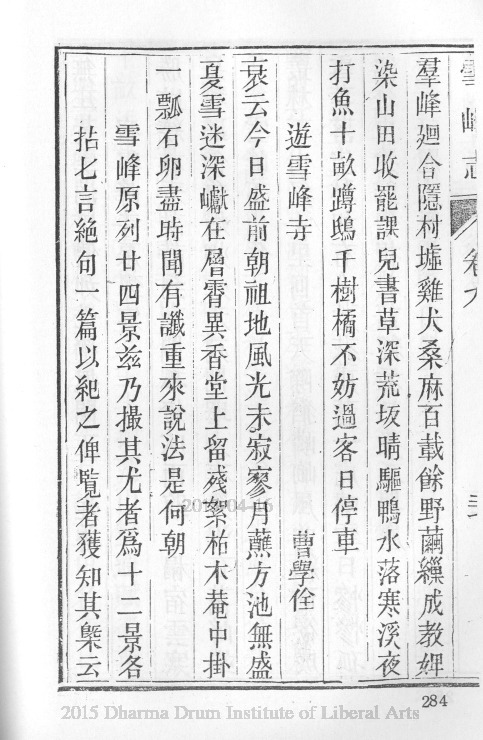 雪峰志 卷九
羣峰廻合隱村墟雞犬桑麻百載餘野繭繅成教婢
染山田收罷課兒書草深荒坂晴驅鴨水落寒溪夜
打魚十畝蹲鴟千樹橘不妨過客日停車
遊雪峰寺 曹學佺
衰云今日盛前朝祖地風光未寂寥月蘸方池無盛
夏雪迷深巘在層霄異香堂上留殘篆枯木菴中掛
一瓢石卵盡時聞有讖重來說法是何朝
雪峰原列廿四景茲乃撮其尤者爲十二景各
拈七言絕句一篇以紀之俾覽者獲知其槩云
284
2015 Dharma Drum Institute of Liberal Arts